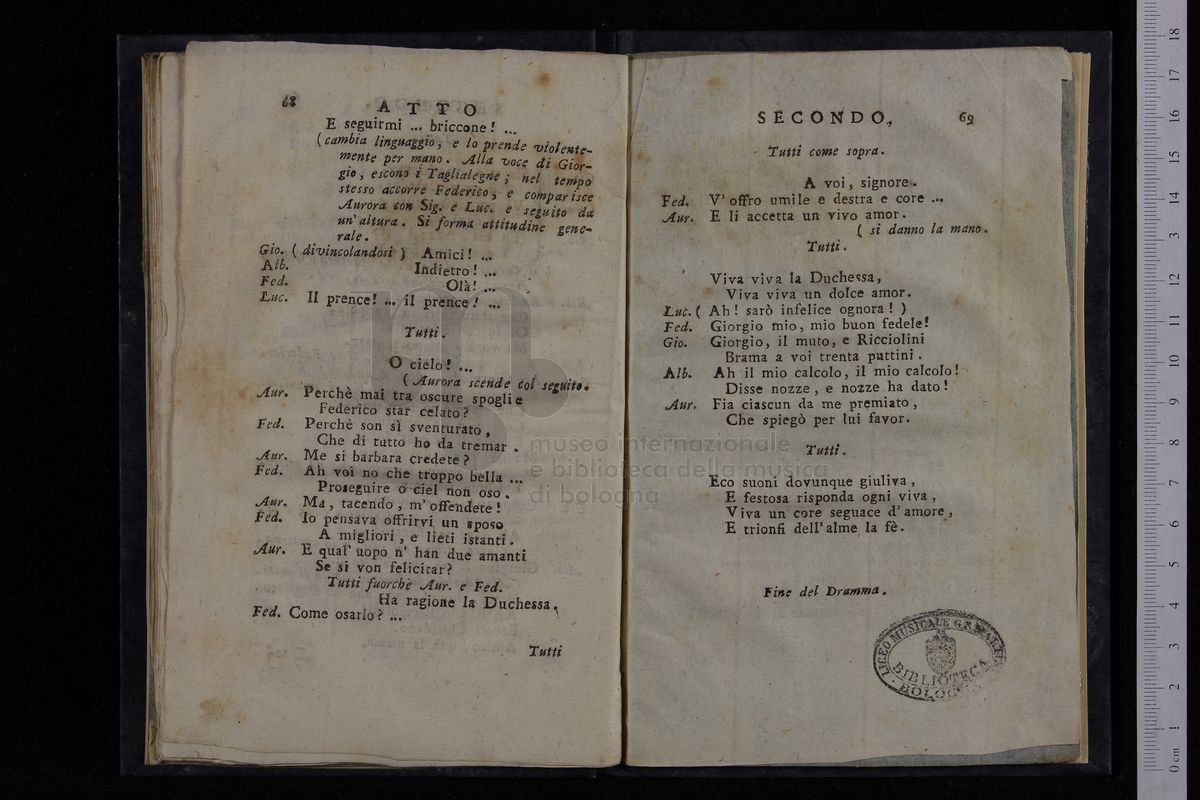 68
ATTO
E seguirmi ... briccone! ...
(cambia linguaggio, e lo prende violente-
mente per mano. Alla voce di Gior-
gio, escono i Taglialegne; nel tempo
stesso accorre Federico, e comparisce
Aurora con Sig. e Luc. e seguito da
un'altura. Si forma attitudine gene-
rale.
Gio. (divincolandosi) Amici! ...
Alb. Indietro! ...
Fed. Olà! ...
Luc. Il prence! ... il prence! ...
Tutti.
O cielo! ...
(Aurora scende col seguito.
Aur. Perchè mai tra oscure spoglie
Federico star celato?
Fed. Perchè son sì sventurato,
Che di tutto ho da tremar.
Aur. Me si barbara credete?
Fed. Ah voi no che troppo bella ...
Proseguire o ciel non oso.
Aur. Ma, tacendo, m'offendete!
Fed. Io pensava offrirvi un sposo
A migliori, e lieti istanti.
Aur. E qual' uopo n' han due amanti
Se si von felicitar?
Tutti fuorchè Aur. e Fed.
Ha ragione la Duchessa.
Fed. Come osarlo? ...
Tutti
SECONDO.
69
Tutti come sopra.
A voi, signore.
Fed. V' offro umile e destra e core ...
Aur. E li accetta un vivo amor.
( si danno la mano.
Tutti.
Viva viva la Duchessa,
Viva viva un dolce amor.
Luc. ( Ah! sarò infelice ognora! )
Fed. Giorgio mio, mio buon fedele!
Gio. Giorgio, il muto, e Ricciolini
Brama a voi trenta puttini.
Alb. Ah il mio calcolo, il mio calcolo!
Disse nozze, e nozze ha dato!
Aur. Fia ciascun da me premiato,
Che spiegò per lui favor.
Tutti.
Eco suoni dovunque giuliva,
E festosa risponda ogni viva,
Viva un core seguace d' amore,
E trionfi dell'alme la fè.
Fine del Dramma.
LICEO MUSICALE G.B. MARTINI
BIBLIOTECA
BOLOGNA
museo internazionale
e biblioteca della musica
di bologna
0 cm 1 2 3 4 5 6 7 8 9 10 11 12 13 14 15 16 17 18